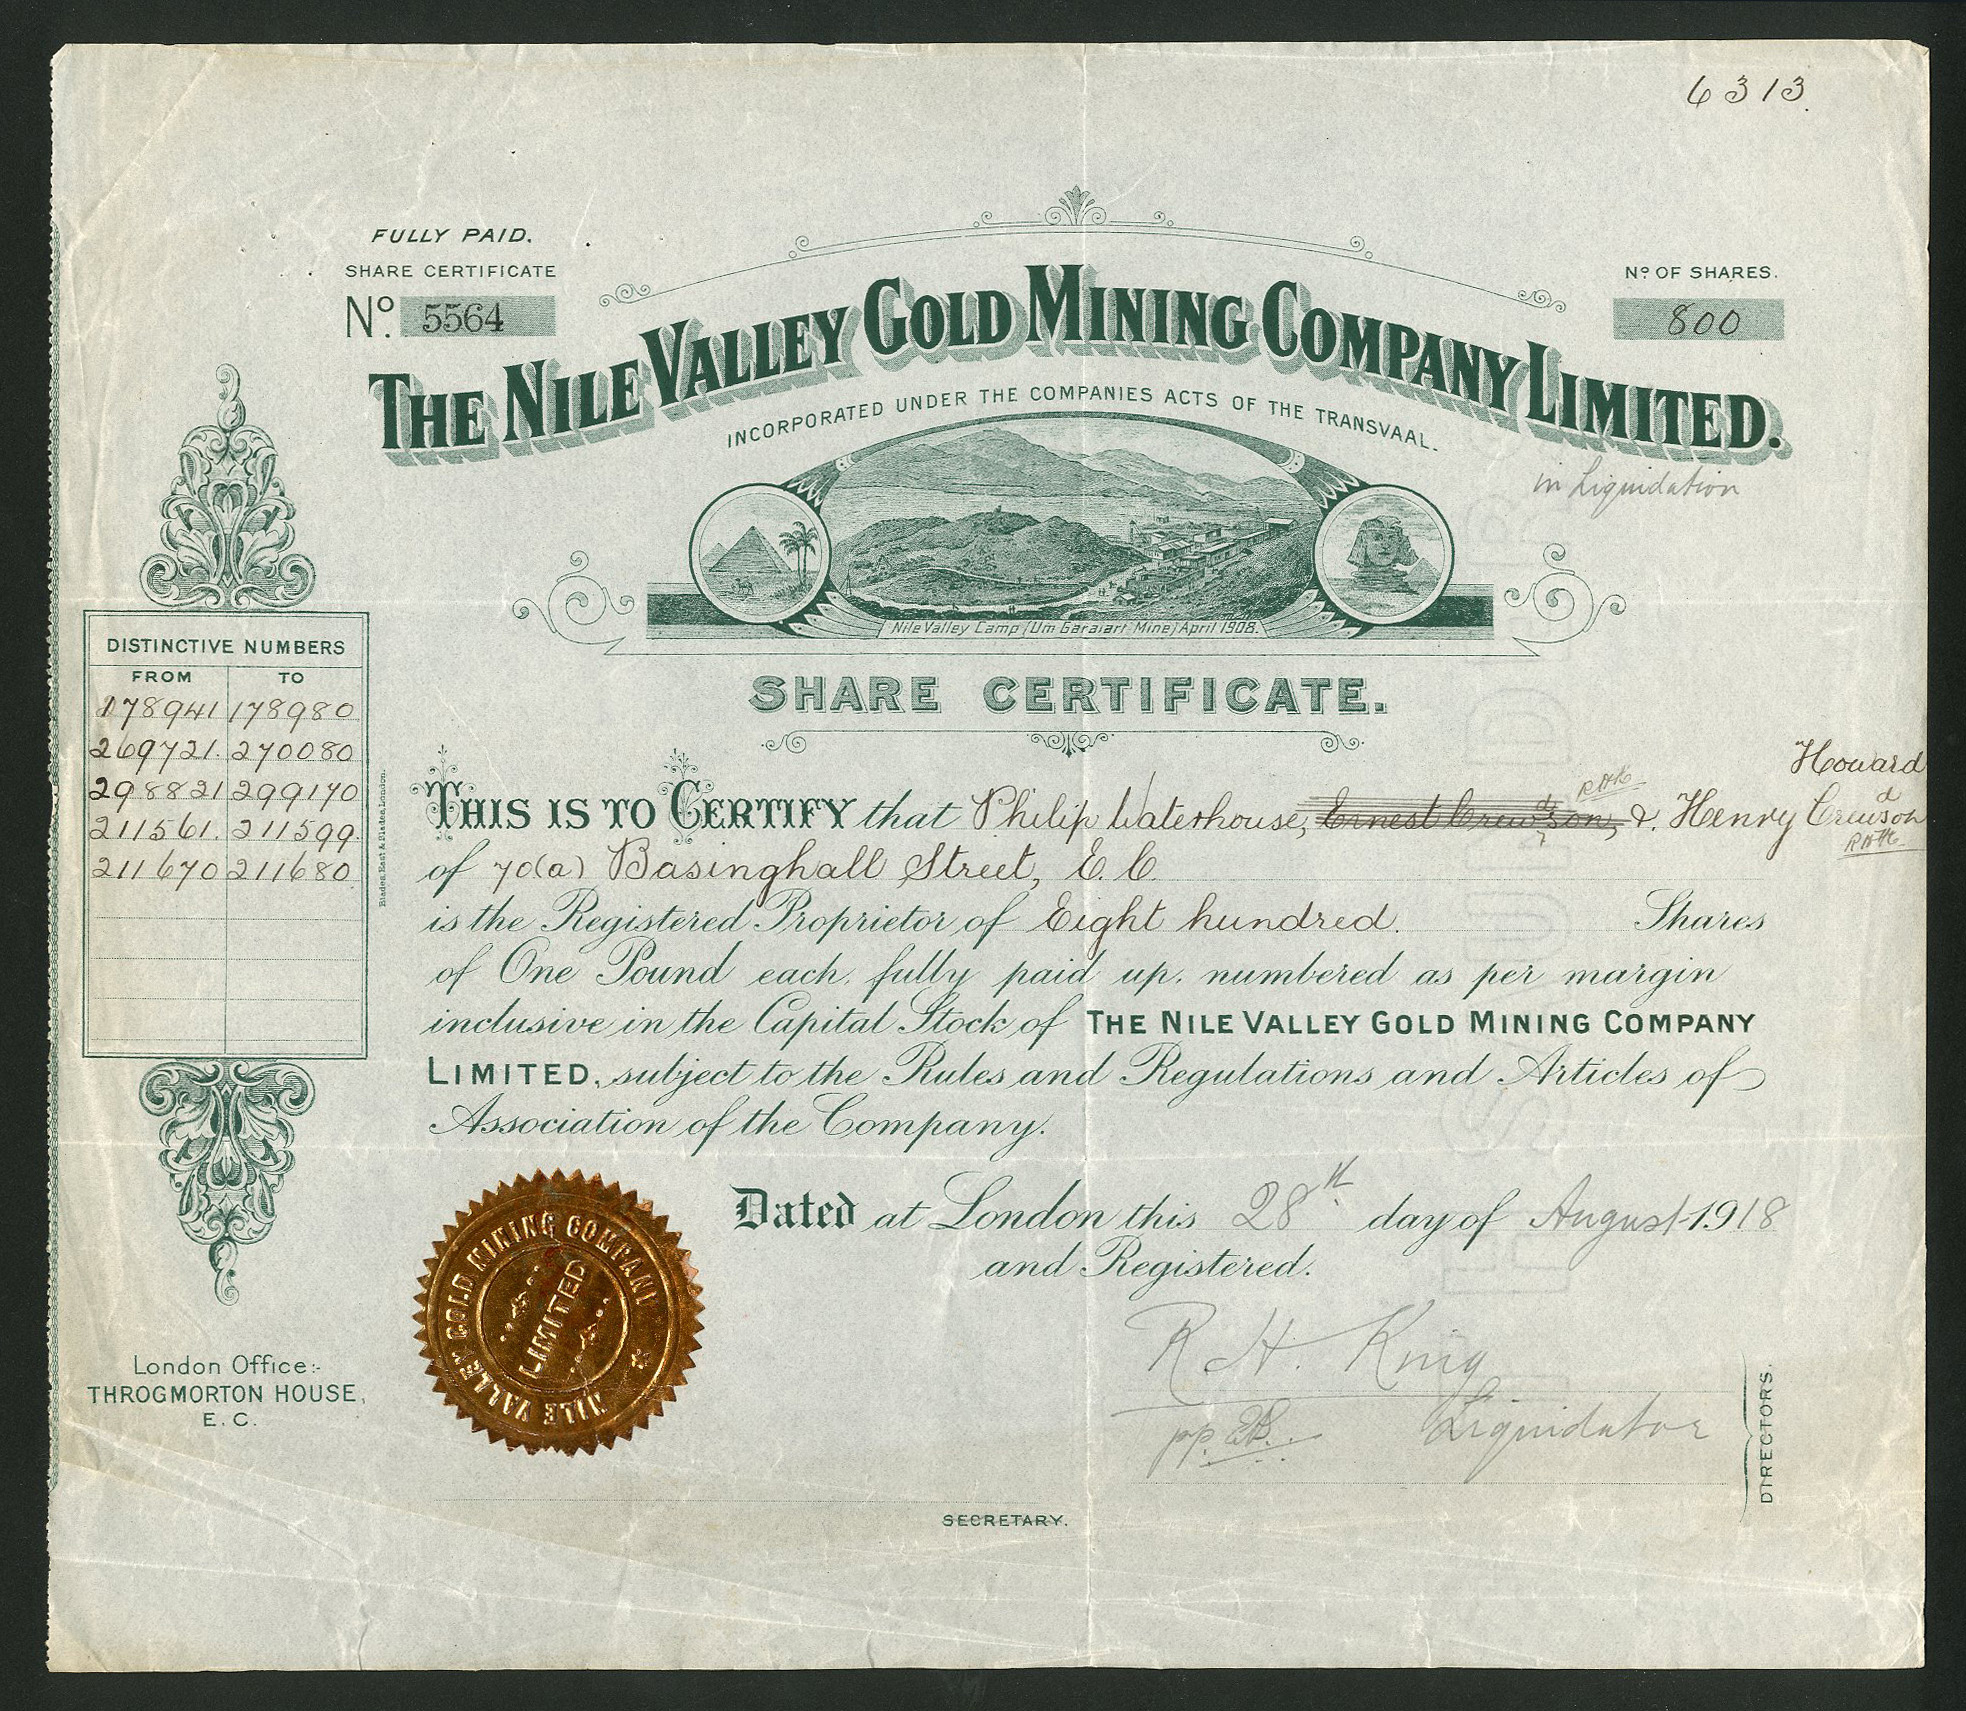 6313.
FULLY PAID.
SHARE CERTIFICATE
Nº. 5564
Nº OF SHARES.
800
THE NILE VALLEY GOLD MINING COMPANY LIMITED.
INCORPORATED UNDER THE COMPANIES ACTS OF THE TRANSVAAL.
in Liquidation
Nile Valley Camp (Um Garaiart Mine) April 1908.
SHARE CERTIFICATE.
DISTINCTIVE NUMBERS
FROM TO
178941 178980
269721. 270080
298821 299170
211561. 211599.
211670 211680
Blades, East & Blades, London.
Howard
RHK
THIS IS TO CERTIFY that Philip Waterhouse, Ernest Crewdson, & Henry Crewdson
RHK
of 70(a) Basinghall Street, E.C.
is the Registered Proprietor of Eight hundred. Shares
of One Pound each, fully paid up, numbered as per margin
inclusive in the Capital Stock of THE NILE VALLEY GOLD MINING COMPANY
LIMITED, subject to the Rules and Regulations and Articles of
Association of the Company.
Dated at London this 28th day of August 1918
and Registered.
NILE VALLEY GOLD MINING COMPANY
LIMITED
R H. King
Liquidator
DIRECTORS.
SECRETARY.
London Office:-
THROGMORTON HOUSE,
E.C.